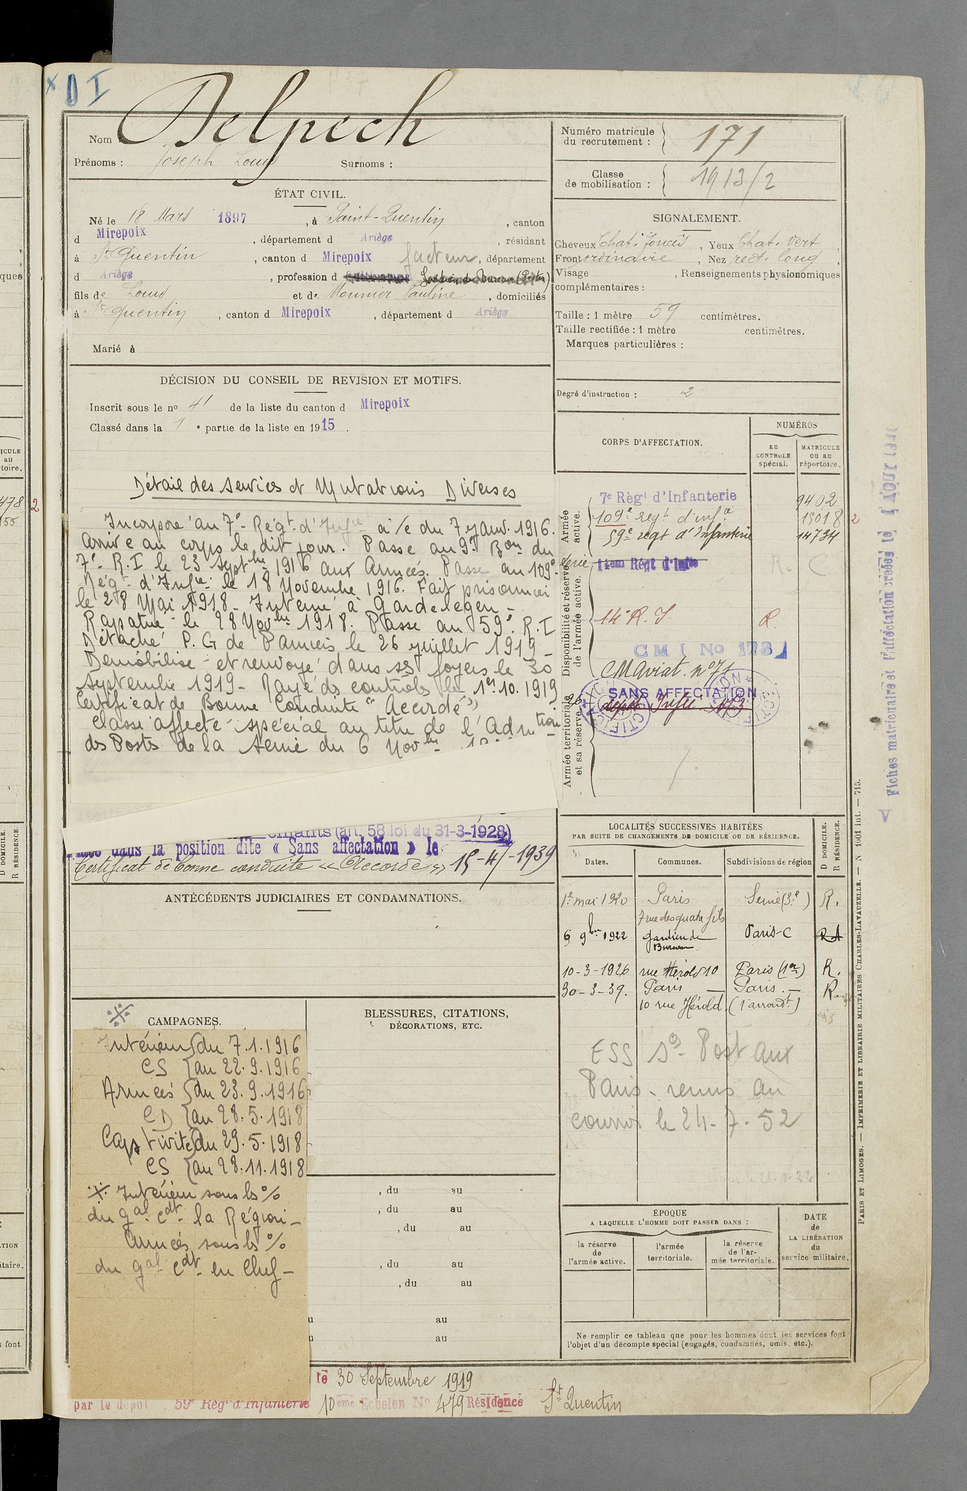 D I
Nom Delpech
Prénoms : Joseph Louis Surnoms :
Numéro matricule du recrutement : 171
Classe de mobilisation : 1913/2
ÉTAT CIVIL.
Né le 18 Mars 1897, à Saint-Quentin, canton
d Mirepoix, département d Ariège, résidant
à St Quentin, canton d Mirepoix, département
facteur
d Ariège, profession d
fils de Louis et de Mounier Pauline, domiciliés
à St Quentin, canton d Mirepoix, département d Ariège
Marié à
SIGNALEMENT.
Cheveux Chat. foncé, Yeux Chat. vert,
Front ordinaire, Nez rect. long,
Visage , Renseignements physionomiques
complémentaires :
Taille : 1 mètre 59 centimètres.
Taille rectifiée : 1 mètre centimètres.
Marques particulières :
Degré d'instruction : 2
DÉCISION DU CONSEIL DE REVISION ET MOTIFS.
Inscrit sous le no 41 de la liste du canton d Mirepoix
Classé dans la 1 e partie de la liste en 1915.
Détail des services et Mutations Diverses
Incorporé au 7e Régt d'Infie à/c du 7 Janv. 1916.
Arrivé au corps le dit jour. Passé au 9e Bon du
7e R.I le 23 Septbre 1916 aux Armées. Passé au 109e
Régt d'Infie le 18 Novembre 1916. Fait prisonnier
le 28 Mai 1918 - Interné à Gardelegen -
Rapatrié le 28 Novbre 1918. Passé au 59e R.I
Détaché P.G de Pamiers le 26 juillet 1919 -
Démobilisé et renvoyé dans ses foyers le 30
septembre 1919 - Rayé des contrôles le 1er.10.1919
Certificat de Bonne Conduite "Accordé"
Classé affecté spécial au titre de l'Admtion
des Postes de la Seine du 6 Novbre
enfants (art. 58 loi du 31-3-1928)
dans la position dite « Sans affectation » le 15-4-1939
Certificat de bonne conduite « Accordé »
CORPS D'AFFECTATION.
NUMÉROS
AU CONTROLE spécial.
MATRICULE OU AU répertoire.
Armée active.
7e Régt d'Infanterie 9402
109e regt d'infie 18018 2
59e regt d'Infanterie 14734
Disponibilité et réserve de l'armée active.
14em Régt d'Infie R. C
14e R.I. R.
C M I No 173
CM Aviat. no 71
Armée territoriale et sa réserve.
SANS AFFECTATION
dépôt Infie No 3
Fiches matriculaire et d'affectation créées le
LOCALITÉS SUCCESSIVES HABITÉES
PAR SUITE DE CHANGEMENTS DE DOMICILE OU DE RÉSIDENCE.
Dates. Communes. Subdivisions de région
D DOMICILE. R RÉSIDENCE.
1er mai 1920 Paris Seine (3e) R.
7 rue des quatre fils
6 9bre 1922 Gardien de Bureau Paris-C
10-3-1926 rue Hérold 10 Paris (1er) R.
30-3-39. Paris — Paris. — R.
10 rue Hérold (1 arrondt)
ESS So Post aux
Paris. remis au
courrier le 24-7-52
ANTÉCÉDENTS JUDICIAIRES ET CONDAMNATIONS.
CAMPAGNES.
Intérieur { du 7.1.1916
CS { au 22.9.1916
Armées { du 23.9.1916
CD { au 28.5.1918
Captivité { du 29.5.1918
CS { au 28.11.1918
※ Intérieur sous ls %
du gal cdt la Région -
Armées sous ls %
du gal cdt en Chef -
BLESSURES, CITATIONS,
DÉCORATIONS, ETC.
, du au
, du au
, du au
, du au
, du au
au
au
ÉPOQUE
A LAQUELLE L'HOMME DOIT PASSER DANS :
la réserve de l'armée active.
l'armée territoriale.
la réserve de l'armée territoriale.
DATE de LA LIBÉRATION du service militaire.
Ne remplir ce tableau que pour les hommes dont les services font
l'objet d'un décompte spécial (engagés, condamnés, omis, etc.).
le 30 Septembre 1919
par le dépôt 59e Rég d'Infanterie 10ème Echelon No 479 Résidence St Quentin
PARIS ET LIMOGES. — IMPRIMERIE ET LIBRAIRIE MILITAIRES CHARLES-LAVAUZELLE. — N 1001 int. — 715.